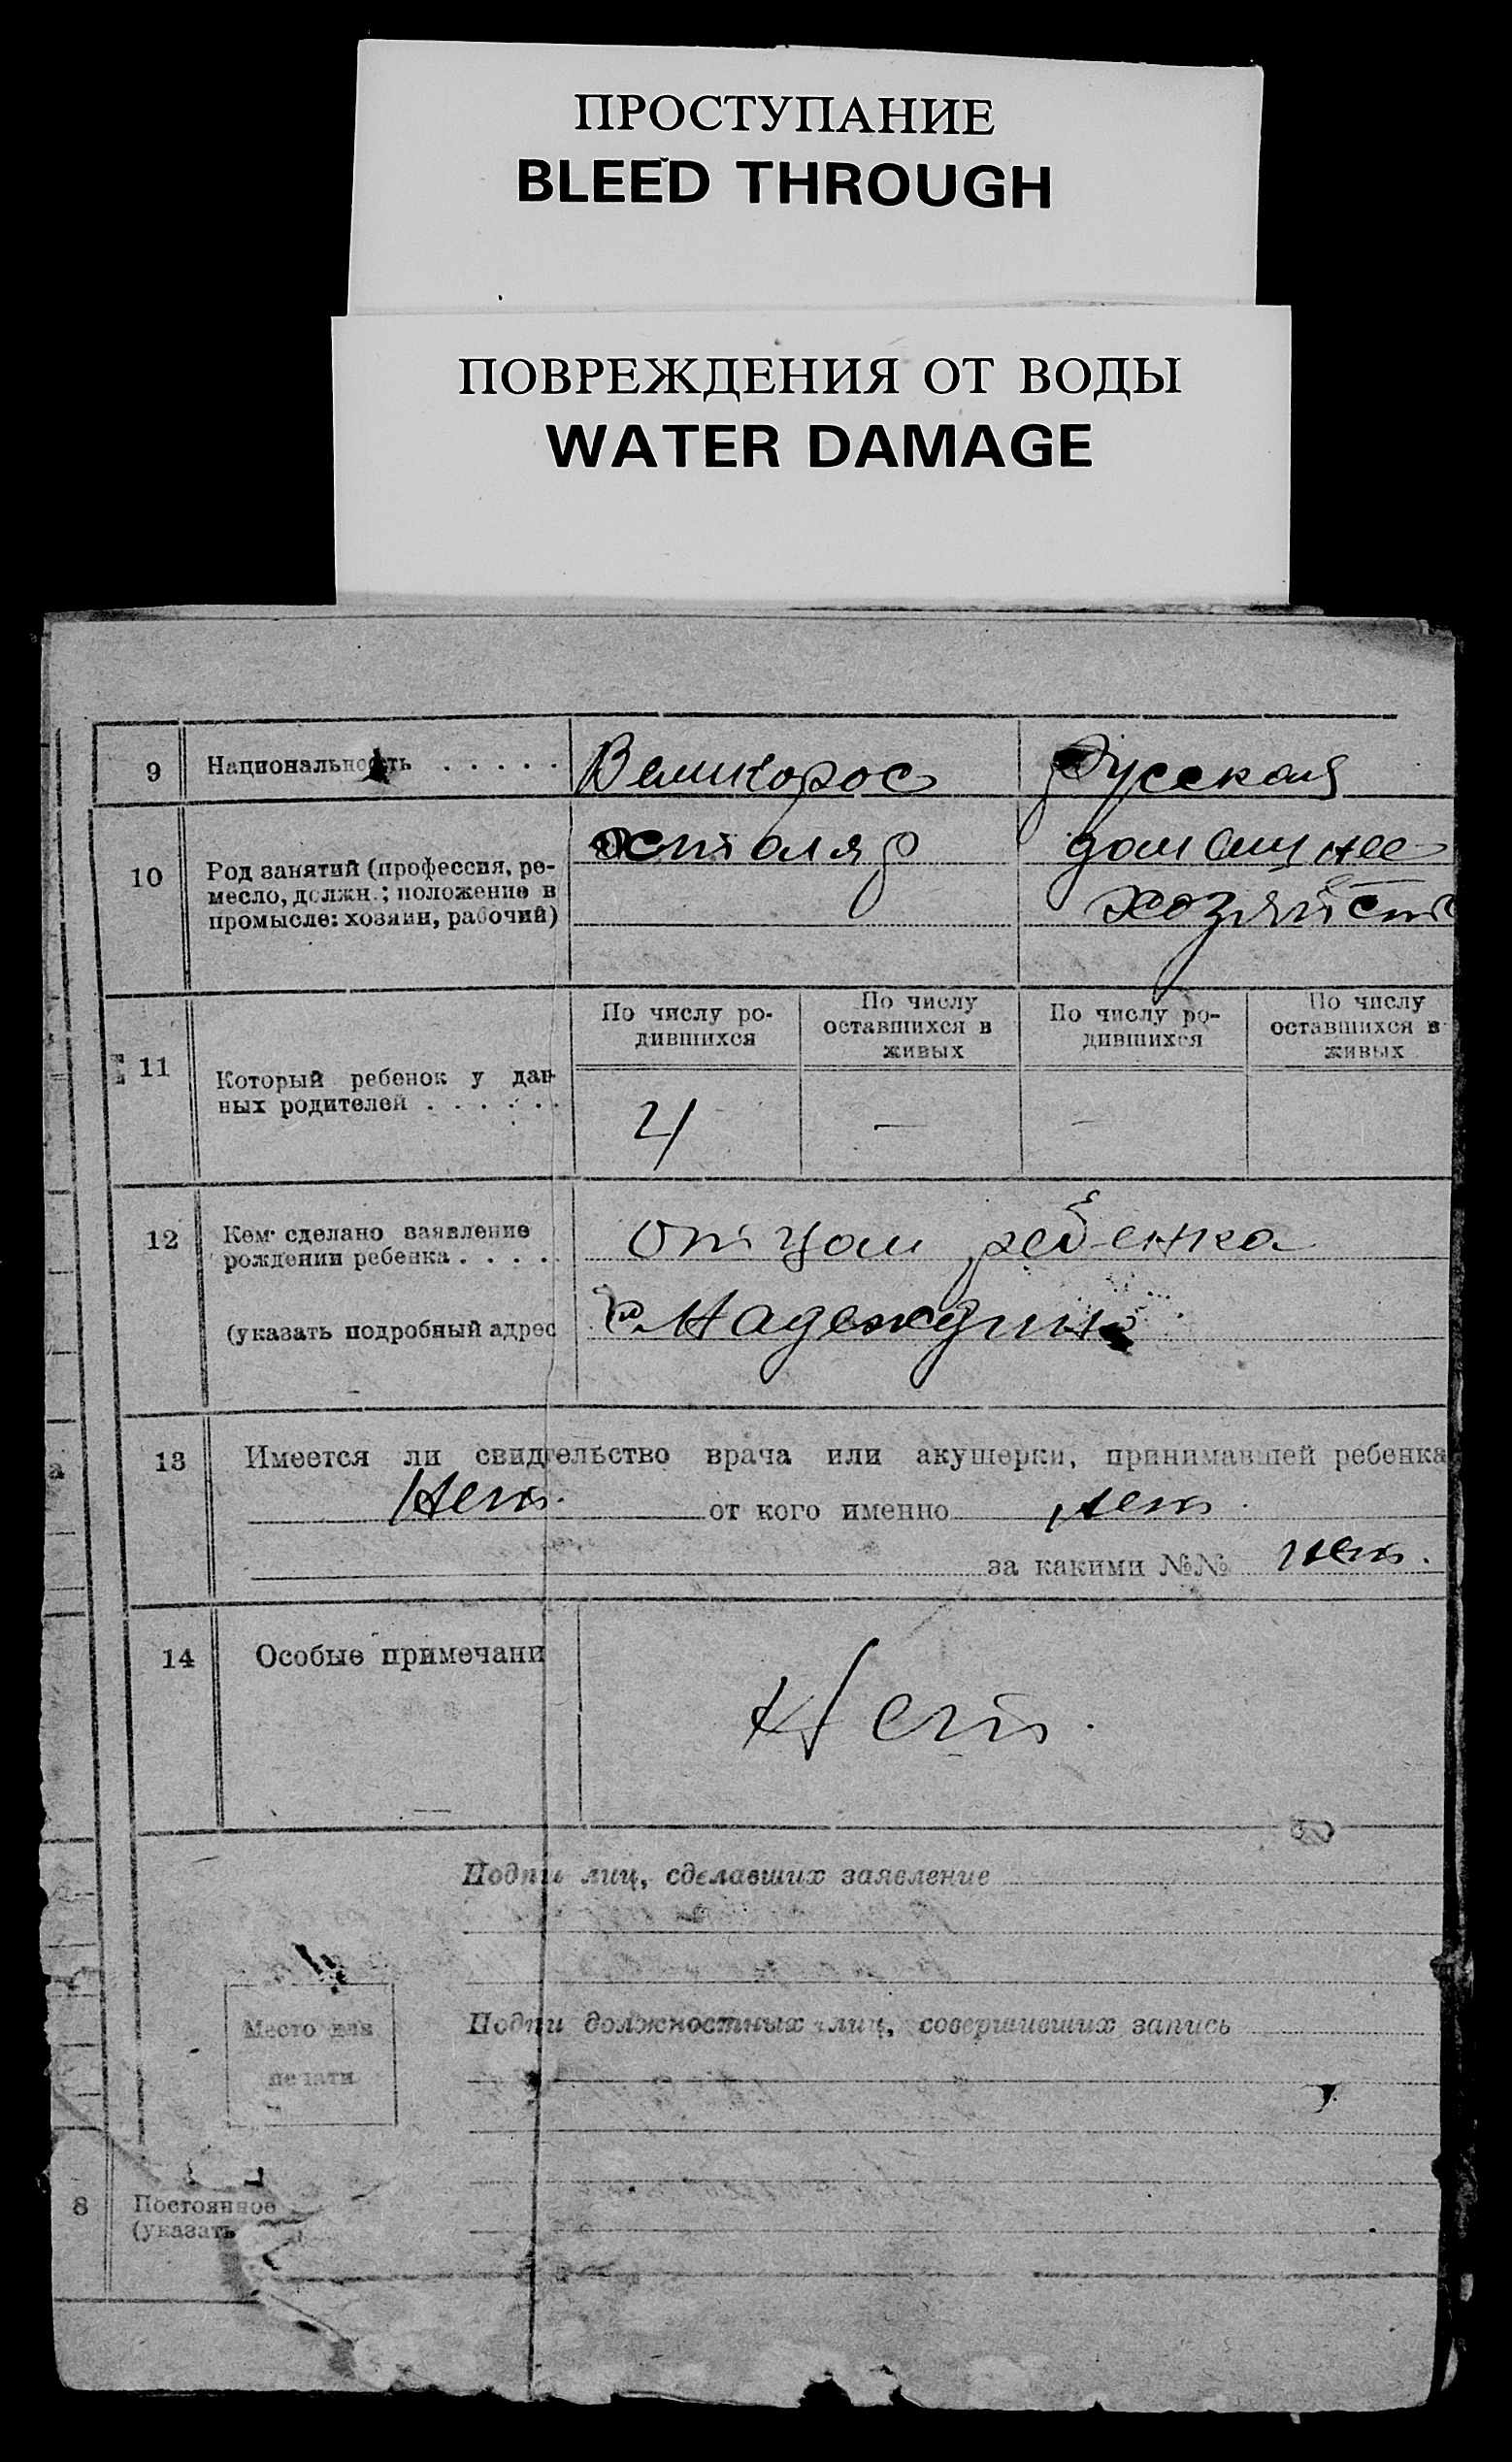 ПРОСТУПАНИЕ
BLEED THROUGH
ПОВРЕЖДЕНИЯ ОТ ВОДЫ
WATER DAMAGE
9 Национальность . . . . . Великорос Русская
10 Род занятий (профессия, ре-
месло, должн.; положение в
промысле: хозяин, рабочий)
столяр
домашнее
хозяйств
11 Который ребенок у дан-
ных родителей . . . . . .
По числу ро-
дившихся
По числу
оставшихся в
живых
По числу ро-
дившихся
По числу
оставшихся в
живых
4 — —
12 Кем сделано заявление
рождении ребенка . . . . .
Отцом ребенка
(указать подробный адрес
Надеждино
13 Имеется ли свидтельство врача или акушерки, принимавшей ребенка
Нет. от кого именно нет.
за какими №№ нет.
14 Особые примечани
Нет.
Подпи лиц, сделавших заявление
Место для
печати
Подпи должностных лиц, совершивших запись
8 Постоянное
(указать